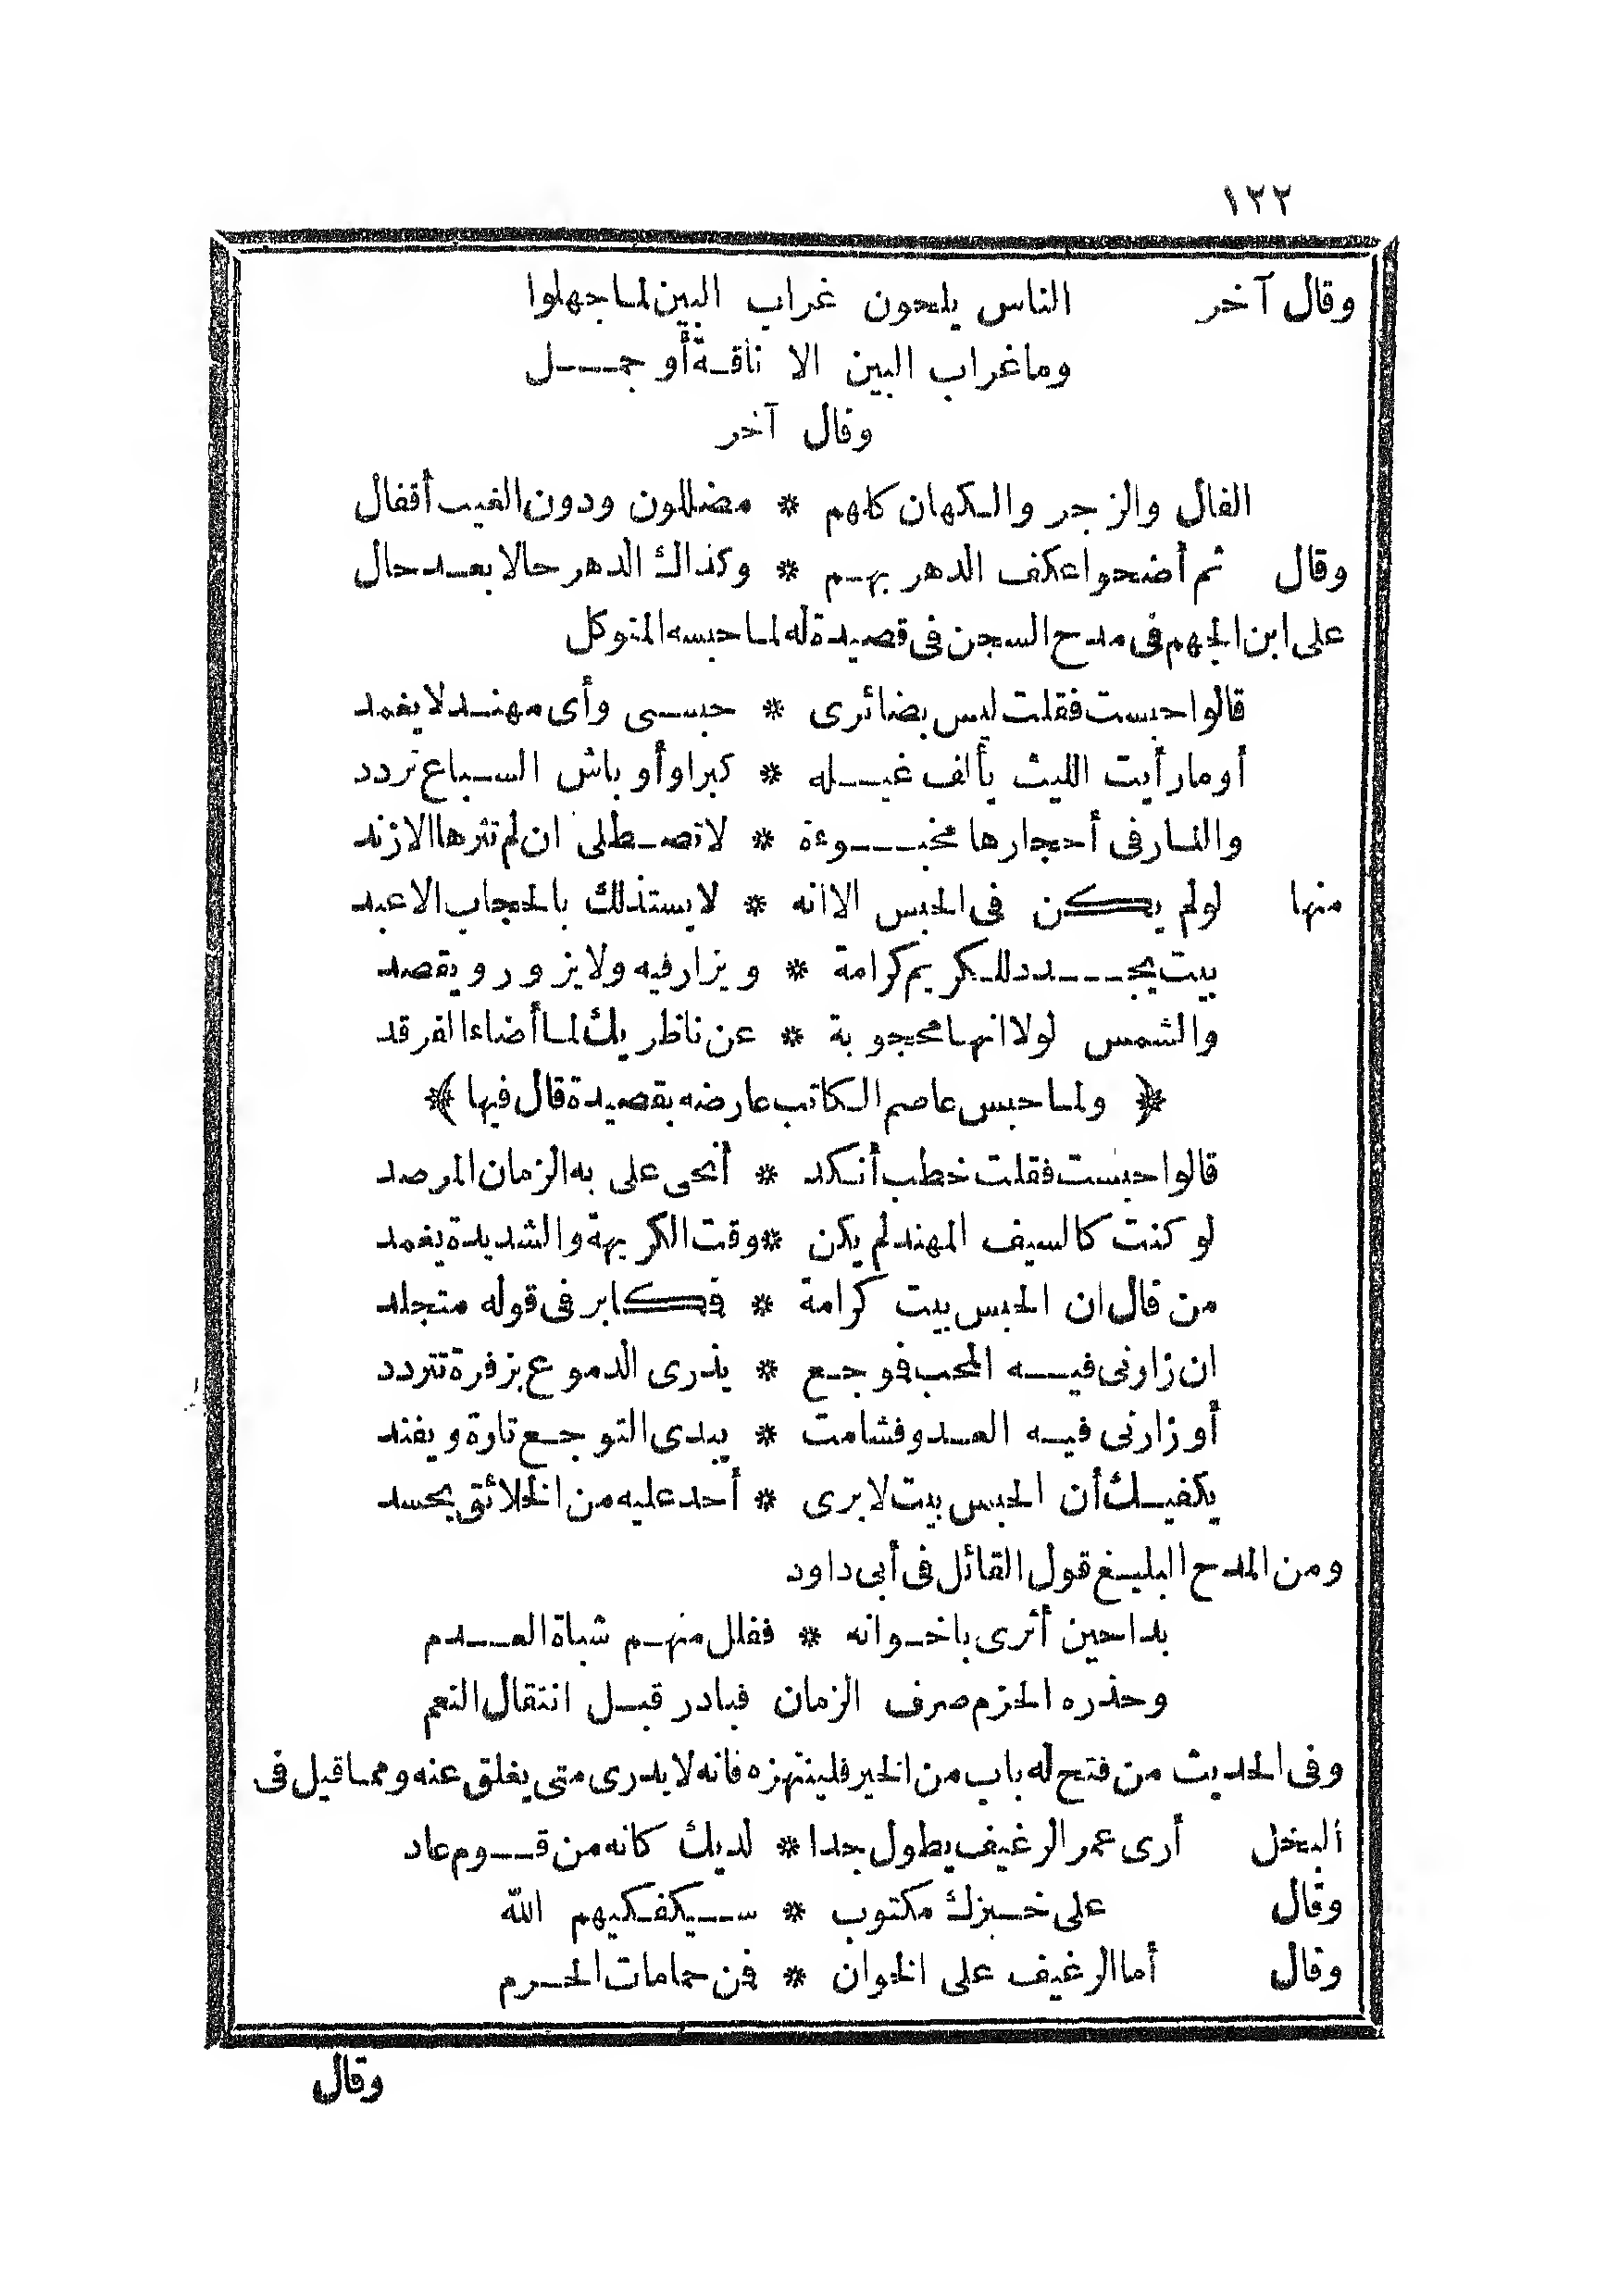 ١٢٢
وقال آخر الناس يلحون غراب البين لما جهلوا
وما غراب البين الا ناقة أو جمل
وقال آخر
الفال والزجر والكهان كلهم * مضللون ودون الغيب أقفال
وقال ثم أضحوا عكف الدهر بهم * وكذاك الدهر حالا بعد حال
على ابن الجهم فى مدح السجن فى قصيدة له لما حبسه المتوكل
قالوا حبست فقلت ليس بضائرى * حبسى وأى مهند لا يغمد
أو ما رأيت الليث يألف غيله * كبرا وأوباش السباع تردد
والنار فى أحجارها مخبوءة * لا تصطلى ان لم تثرها الازند
منها لو لم يكن فى الحبس الا انه * لا يستذلك بالحجاب الاعبد
بيت يجدد للكريم كرامة * ويزار فيه ولا يزور ويقصد
والشمس لولا انها محجوبة * عن ناظريك لما أضاءا لفرقد
﴿ ولما حبس عاصم الكاتب عارضه بقصيدة قال فيها ﴾
قالوا حبست فقلت خطب أنكد * أنحى على به الزمان المرصد
لو كنت كالسيف المهند لم يكن * وقت الكريهة والشديدة يغمد
من قال ان الحبس بيت كرامة * فمكابر فى قوله متجلد
ان زارنى فيه المحب فموجع * يذرى الدموع بزفرة تتردد
أو زارنى فيه العدو فشامت * يبدى التوجع تارة ويفند
يكفيك أن الحبس بيت لا يرى * أحد عليه من الخلائق يحسد
ومن المدح البليغ قول القائل فى أبى داود
بدا حين أثرى باخوانه * ففلل منهم شباة العدم
وحذره الحزم صرف الزمان فبادر قبل انتقال النعم
وفى الحديث من فتح له باب من الخير فلينتهزه فانه لا يدرى متى يغلق عنه ومما قيل فى
البخل أرى عمر الرغيف يطول جدا * لديك كانه من قوم عاد
وقال على خبزك مكتوب * سيكفكيهم الله
وقال أما الرغيف على الخوان * فمن حمامات الحرم
وقال